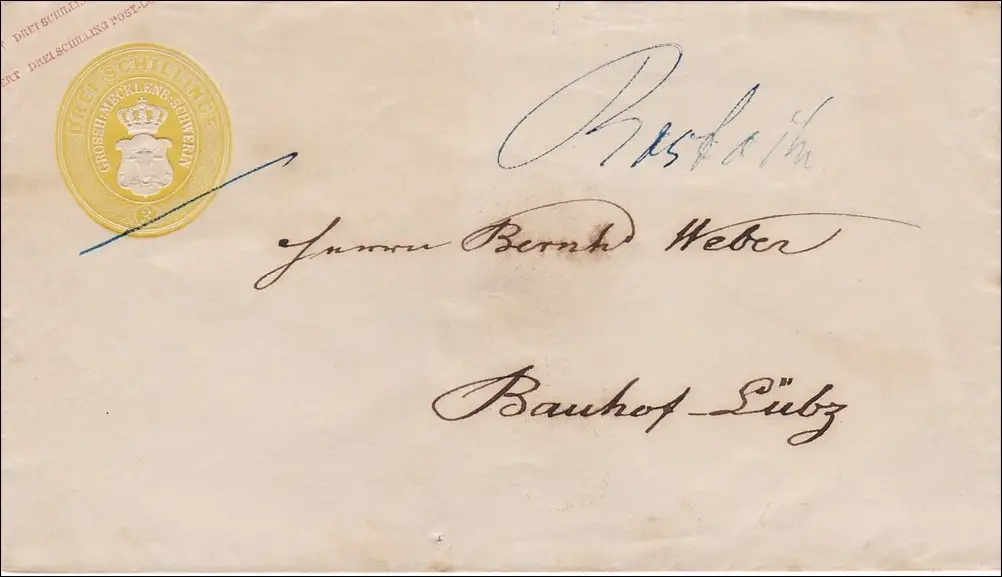 DREI SCHILLIN
ERT DREI SCHILLING POST-CO
DREI SCHILLINGE
GROSSH: MECKLENB: SCHWERIN
3
Herrn Bernhd Weber
Bauhof - Lübz